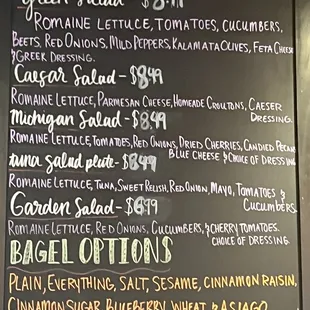 Greek Salad - $8.49
Romaine Lettuce, Tomatoes, Cucumbers,
Beets, Red Onions, Mild Peppers, Kalamata Olives, Feta Cheese
& Greek Dressing.
Caesar Salad - $8.49
Romaine Lettuce, Parmesan Cheese, Homeade Croutons, Caeser
Dressing.
Michigan Salad - $8.49
Romaine Lettuce, Tomatoes, Red Onions, Dried Cherries, Candied Pecans
Blue Cheese & Choice of Dressing
tuna salad plate - $8.49
Romaine Lettuce, Tuna, Sweet Relish, Red Onion, Mayo, Tomatoes &
Cucumbers.
Garden Salad - $6.99
Romaine Lettuce, Red Onions, Cucumbers, & Cherry Tomatoes.
Choice of Dressing.
BAGEL OPTIONS
Plain, Everything, Salt, Sesame, Cinnamon Raisin,
Cinnamon Sugar, Blueberry, Wheat & Asiago